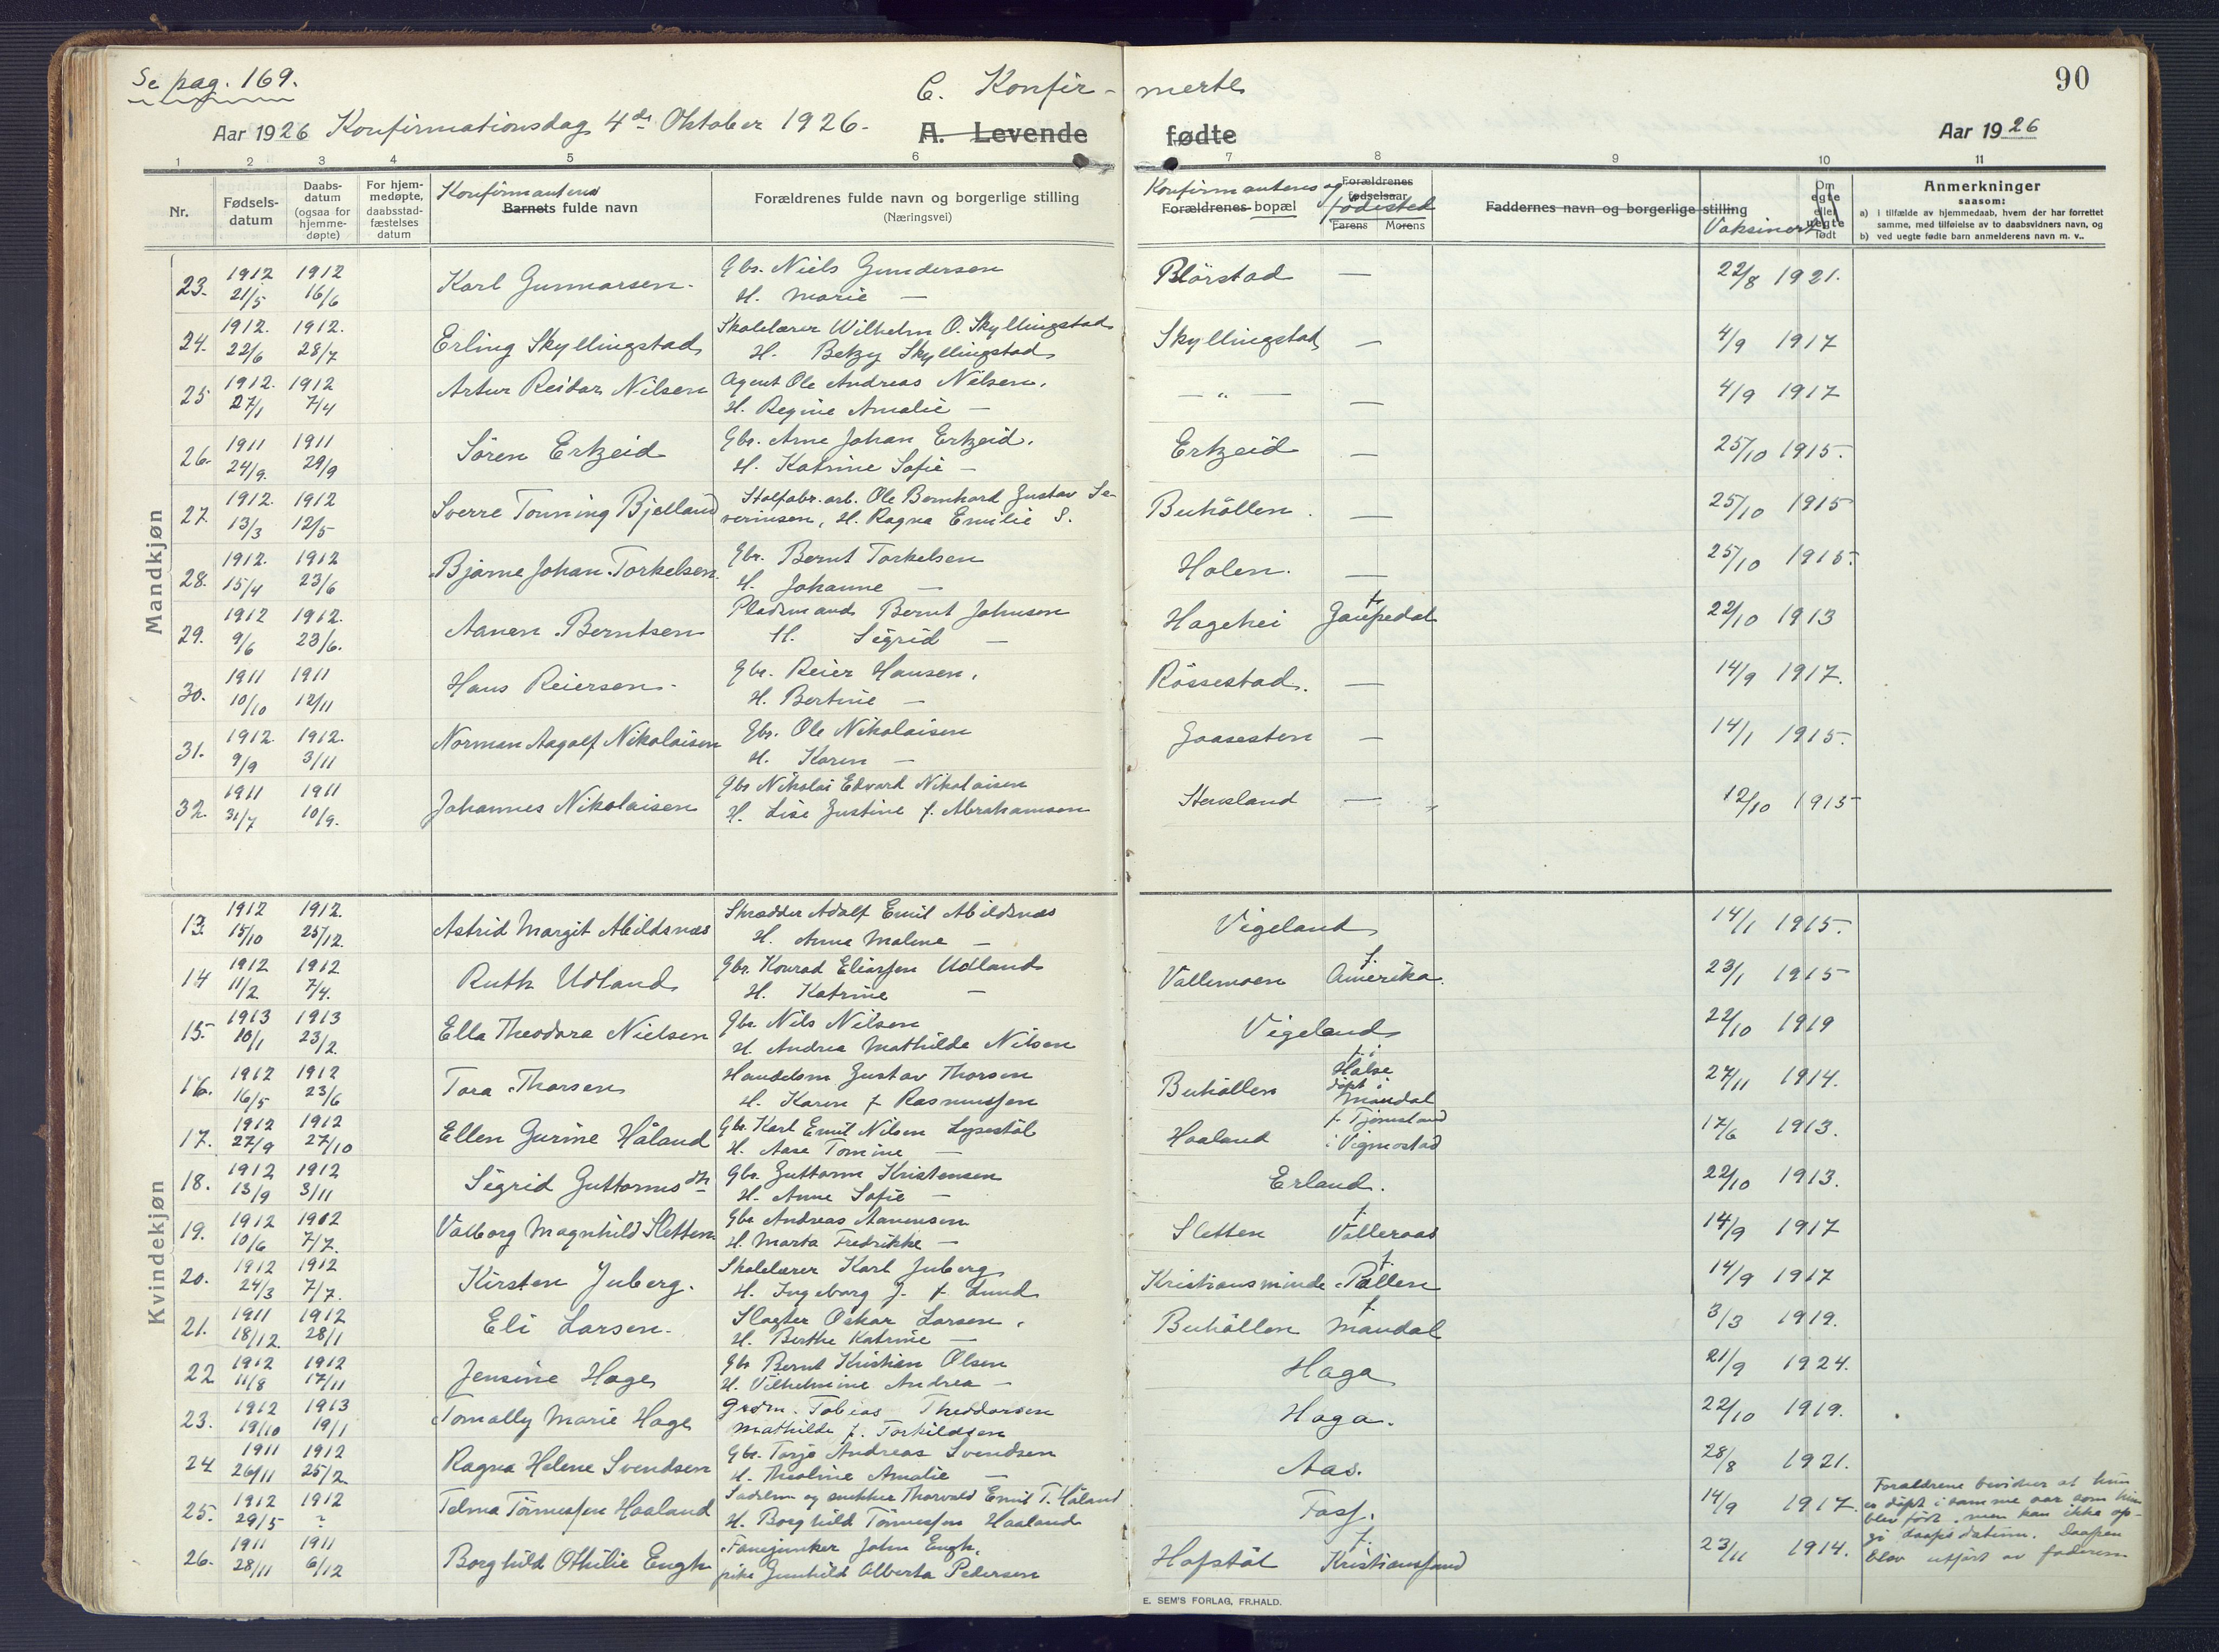 Se pag. 169.
C. Konfir-merte
90
Aar 1926 Konfirmationsdag 4de Oktober 1926.
A. Levende fødte
Aar 1926
1 2 3 4 5 6 7 8 9 10 11
Nr.
Fødsels-datum
Daabs-datum (ogsaa for hjemme-døpte)
For hjem-medøpte, daabsstad-fæstelses datum
Konfirmantens
Barnets fulde navn
Forældrenes fulde navn og borgerlige stilling
(Næringsvei)
Konfirmantens og
Forældrenes bopæl
Forældrenes fødselsaar
fødested
Farens Morens
Faddernes navn og borgerlige stilling
Vaksinert
Om egte eller uegte født
Anmerkninger
saasom:
a) i tilfælde av hjemmedaab, hvem der har forrettet samme, med tilføielse av to daabsvidners navn, og
b) ved uegte fødte barn anmelderens navn m. v..
Mandkjøn
23. 1912 21/5 1912 16/6 Karl Gunnarsen. Gbr. Niels Gundersen H. Marie — Blörstad — 22/8 1921.
24. 1912. 22/6 1912. 28/7 Erling Skyllingstad Skolelærer Wilhelm O. Skyllingstad H. Betzy Skyllingstad Skyllingstad — 4/9 1917
25 1912. 27/1 1912 7/4 Artur Reidar Nilsen Agent Ole Andreas Nilsen. H. Regine Amalie — — " — — 4/9 1917
26. 1911 24/9. 1911 29/9 Sören Erkzeid Gbr. Arne Johan Erkzeid. H. Katrine Sofie — Erkzeid — 25/10 1915.
27. 1912. 13/3 1912 12/5 Sverre Tonning Bjelland Stolfabr. arb. Ole Bernhard Gustav Se-verinsen, H. Ragna Emilie S. Buhöllen. — 25/10 1915
28. 1912. 15/4 1912 23/6 Bjarne Johan Torkelsen. Gbr. Bernt Torkelsen H. Johanne — Holen. — 25/10 1915.
29. 1912 9/6 1912. 23/6. Aanen Berntsen Pladsmand Bernt Johnsen H. Sigrid — Hagehei f. Gaupedal 22/10 1913
30. 1911 10/10 1911 12/11 Hans Reiersen. Gbr. Reier Hansen. H. Bertine — Rössestad. — 14/9 1917.
31. 1912. 9/9 1912. 3/11 Norman Aagolf Nikolaisen Gbr. Ole Nikolaisen H. Karen — Gaasesten — 14/1 1915.
32. 1911 31/7 1911 10/9. Johannes Nikolaisen Gbr Nikolai Edvard Nikolaisen H. Lise Gustine f. Abrahamsen Stensland — 12/10 1915
Kvindekjøn
13. 1912 15/10 1912. 25/12. Astrid Margit Abildsnæs Skrædder Adolf Emil Abildsnæs H. Anna Malene — Vigeland 14/1 1915.
14 1912 11/2. 1912 7/4. Ruth Udland Gbr. Konrad Eliassen Udland H. Katrine — Vallemoen f. Amerika. 23/1 1915
15. 1913 10/1 1913 23/2. Ella Theodora Nielsen Gbr Nils Nilsen H. Andrea Mathilde Nilsen Vigeland 22/10 1919
16. 1912 16/5 1912 23/6 Tora Thorsen Handelsm Gustav Thorsen H. Karen f Rasmussen Buhöllen f. i Halse döpt i Mandal 27/11 1914.
17. 1912 27/9 1912 27/10 Ellen Gurine Håland Gbr. Karl Emil Nilsen Lysestöl H. Aase Tomine — Haaland f. Tjomsland i Vigmostad 17/6 1913.
18. 1912 13/9 1912 3/11 Sigrid Guttormsdtr Gbr. Guttorm Kristensen H. Anne Sofie — Erland. 22/10 1913.
19. 1912 10/6 1912 7/7. Valborg Magnhild Sletten. Gbr Andreas Aanensen H. Marta Fredrikke — Sletten f. Valleraas 14/9 1917
20. 1912 24/3 1912 7/7. Kirsten Juberg. Skolelærer Karl Juberg H. Ingeborg J. f. Lund Kristiansminde f. Pällen 14/9 1917
21. 1911 18/12. 1912 28/1 Eli Larsen. Slagter Oskar Larsen. H. Berthe Katrine — Buhöllen f. Mandal 3/3 1919.
22 1912 11/8 1912 17/11 Jensine Hage Gbr Bernt Kristian Olsen H. Vilhelmine Andrea — Haga 21/9 1924.
23. 1912 19/10 1913 19/1 Tomally Marie Hage Grdm. Tobias Theodorsen Mathilde f. Torkildsen Haga. 22/10 1919.
24 1911 26/11 1912 25/2 Ragna Helene Svendsen Gbr. Torje Andreas Svendsen H. Theoline Amalie — Aas. 28/8 1921.
25. 1912 29/5 1912 ? Telma Tönnessen Haaland Sadelm og snekker Thorvald Emil T. Håland H. Borghild Tönnessen Haaland Foss. 14/9 1917. Forældrene bevidner at hun er döpt i samme aar som hun blev födt, men kan ikke op-gi daapsdatum. Daapen blev utfört av faderen
26. 1911 28/11 1911 6/12 Borghild Othilie Engh Fanejunker John Engh. pike Gunhild Alberta Pedersen Hofstöl f. Kristianssand 23/11 1914.
E. SEM'S FORLAG, FR.HALD.